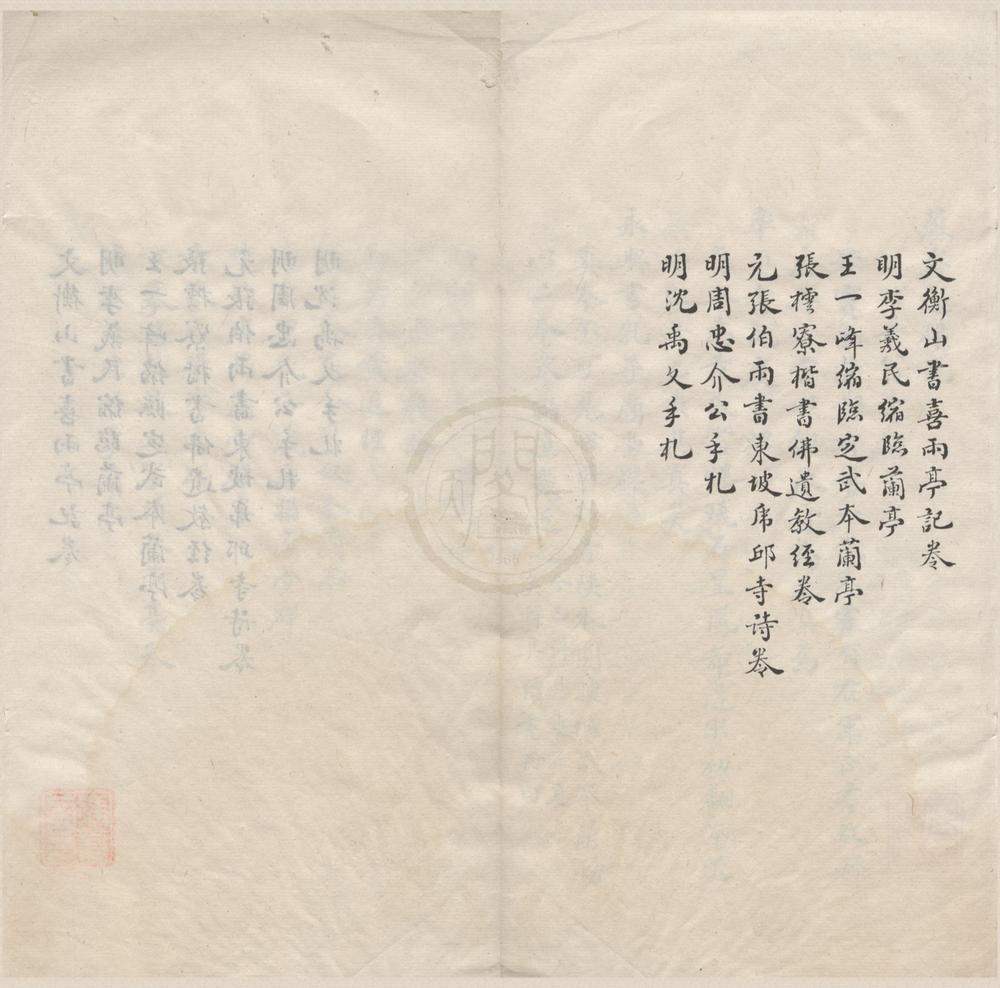 文衡山書喜雨亭記卷
明李羲民縮臨蘭亭
王一峰縮臨定武本蘭亭
張樗寮楷書佛遺教經卷
元張伯雨書東坡虎邱寺詩卷
明周忠介公手札
明沈禹文手札